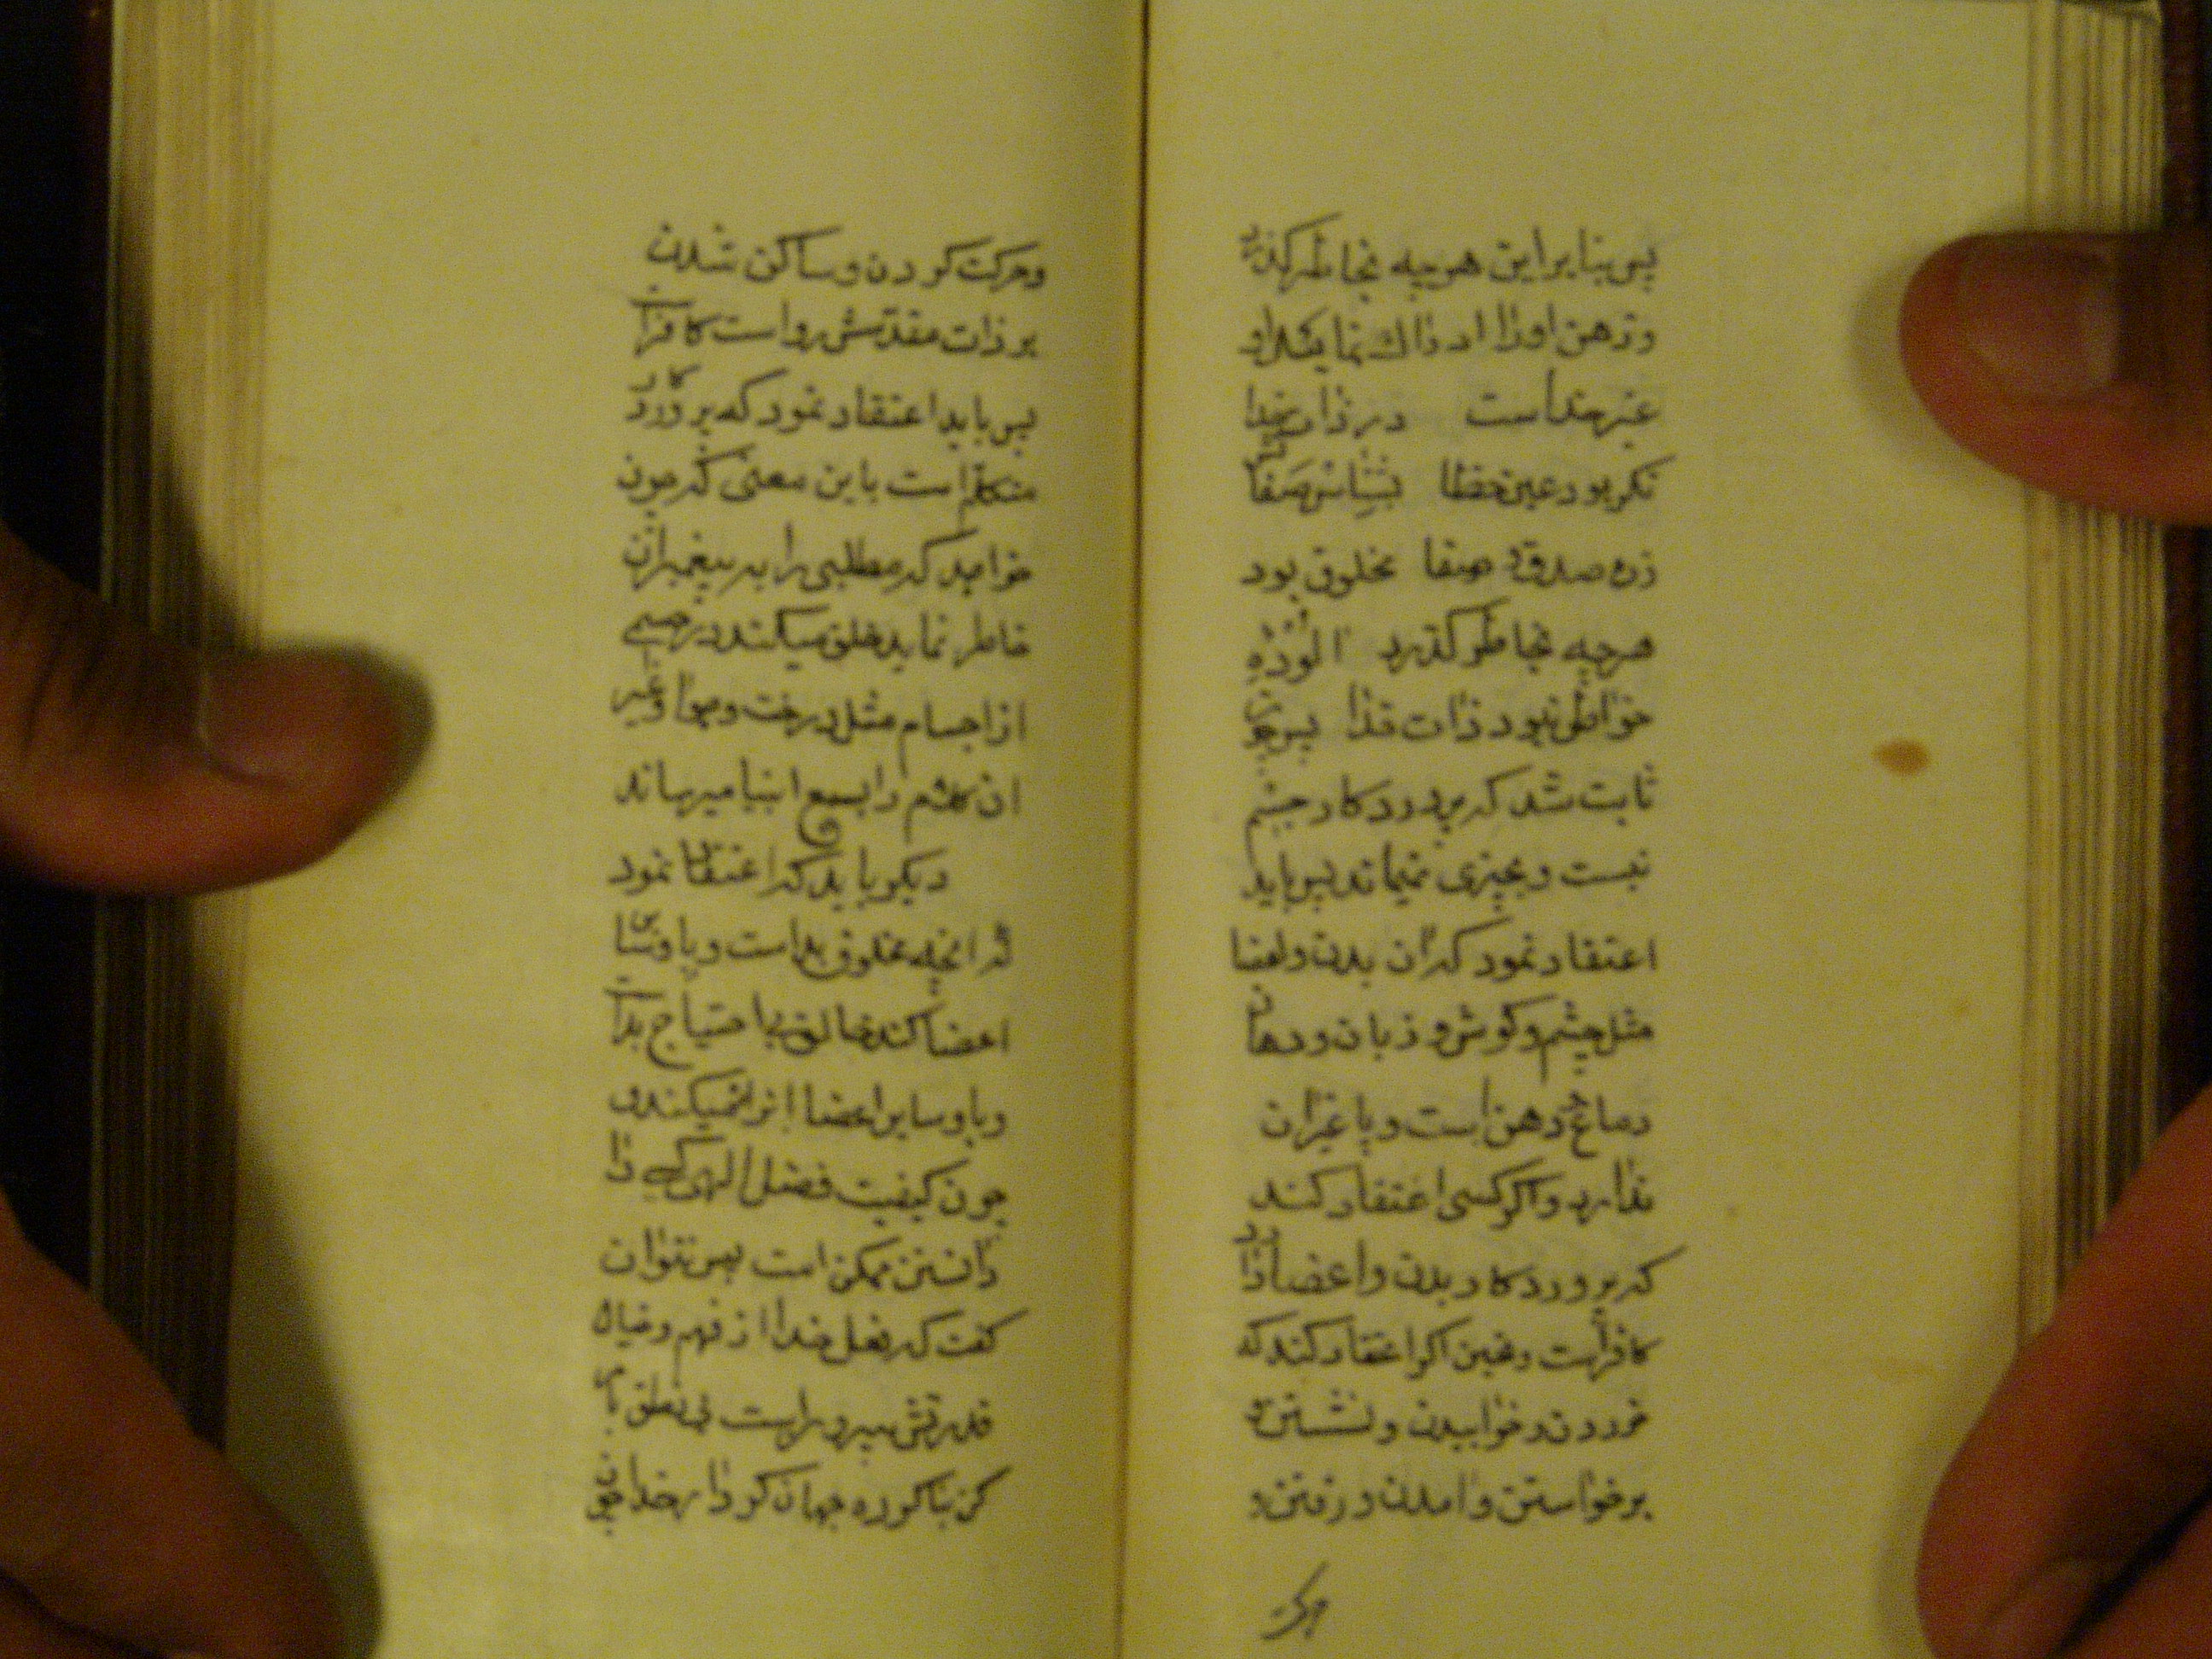 پس بنا بر این هر چه بخاطر گذرد
و ذهن او را ادراک نماید او
غیر خداست در ذات خدا
فکر بود عین خطا
صفا مخلوق بود
هر چه بخاطر گذرد
خواطر نبود ذات خدا پس چون
ثابت شد که پروردکار جسم
نیست و بچیزی نمیماند پس باید
اعتقاد نمود که آن بدن و اعضا
مثل چشم و کوش و زبان و دهان
دماغ دهن است و یا غیر ان
ندارد و اکر کسی اعتقاد کند
که پروردکار بدن و اعضا دارد
کافر است و همین اکر اعتقاد کند که
خوردن و خوابیدن و نشستن و
برخواستن و آمدن و رفتن و
حرکت
و حرکت کردن و ساکن شدن
بر ذات مقدسش رواست کافر است
پس باید اعتقاد نمود که پروردکار
متکلم است باین معنی که چون
خواهد که مطلبی را به پیغمبران
خاطر نماید خلق میکند در جسمی
از اجسام مثل درخت و هوا و غیر
ان کلام را بسمع انبیا میرساند
دیکر باید که اعتقاد نمود
که انچه مخلوق بدست و پا و سایر
اعضا کند خالق بی احتیاج بدست
و پا و سایر اعضا انرا میکند و
چون کیفیت فضل الهی که را
دانستن ممکن است پس نتوان
کفت که فعل خدا از فهم و خیال
قدرتش بیرون است بی نطق با
کن بنا کرده جهان کرد ار خدا چون